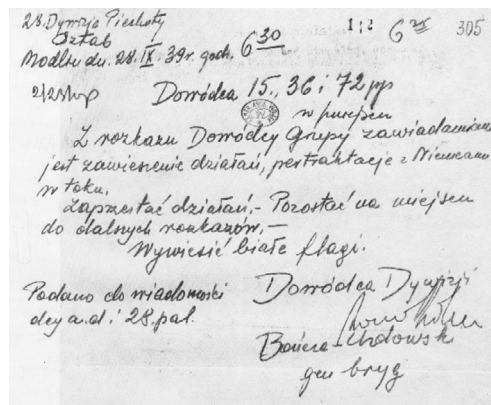 28. Dywizja Piechoty 1:2 6 305
Sztab
Modlin dn. 28.IX.39r. godz. 6 30
Dowódca 15., 36 i 72 pp
w miejscu
Z rozkazu Dowódcy Grupy zawiadamiam
jest zawieszenie działań, pertraktacje z Niemcami
w toku.
Zaprzestać działań.- Pozostać na miejscu
do dalszych rozkazów.—
Wywiesić białe flagi.
Podano do wiadomości Dowódca Dywizji
dcy a.d. i 28. pal.
Bończa-Uzdowski
gen bryg